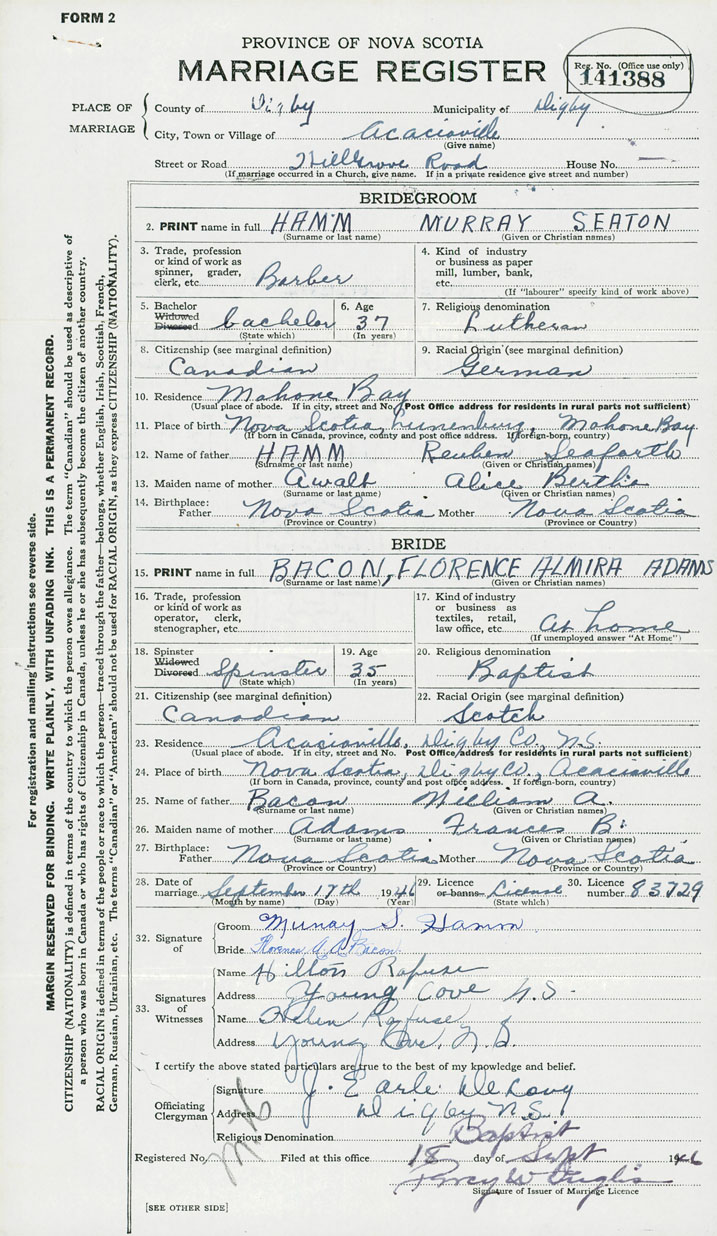 FORM 2
PROVINCE OF NOVA SCOTIA
MARRIAGE REGISTER
Reg. No. (Office use only)
141388
PLACE OF MARRIAGE
County of Digby Municipality of Digby
City, Town or Village of Acaciaville
(Give name)
Street or Road Hillgrove Road House No. —
(If marriage occurred in a Church, give name. If in a private residence give street and number)
BRIDEGROOM
2. PRINT name in full HAMM MURRAY SEATON
(Surname or last name) (Given or Christian names)
3. Trade, profession or kind of work as spinner, grader, clerk, etc. Barber
4. Kind of industry or business as paper mill, lumber, bank, etc.
(If "labourer" specify kind of work above)
5. Bachelor Widowed Divorced bachelor
(State which)
6. Age 37
(In years)
7. Religious denomination
Lutheran
8. Citizenship (see marginal definition)
Canadian
9. Racial Origin (see marginal definition)
German
10. Residence Mahone Bay
(Usual place of abode. If in city, street and No. Post Office address for residents in rural parts not sufficient)
11. Place of birth Nova Scotia, Lunenburg, Mahone Bay
(If born in Canada, province, county and post office address. If foreign-born, country)
12. Name of father HAMM Reuben Seaforth
(Surname or last name) (Given or Christian names)
13. Maiden name of mother Awalt Alice Bertha
(Surname or last name) (Given or Christian names)
14. Birthplace: Father Nova Scotia Mother Nova Scotia
(Province or Country) (Province or Country)
BRIDE
15. PRINT name in full BACON, FLORENCE ALMIRA ADAMS
(Surname or last name) (Given or Christian names)
16. Trade, profession or kind of work as operator, clerk, stenographer, etc.
17. Kind of industry or business as textiles, retail, law office, etc. At home
(If unemployed answer "At Home")
18. Spinster Widowed Divorced Spinster
(State which)
19. Age 35
(In years)
20. Religious denomination
Baptist
21. Citizenship (see marginal definition)
Canadian
22. Racial Origin (see marginal definition)
Scotch
23. Residence Acaciaville, Digby Co., N.S.
(Usual place of abode. If in city, street and No. Post Office address for residents in rural parts not sufficient)
24. Place of birth Nova Scotia, Digby Co., Acaciaville
(If born in Canada, province, county and post office address. If foreign-born, country)
25. Name of father Bacon William A.
(Surname or last name) (Given or Christian names)
26. Maiden name of mother Adams Frances B.
(Surname or last name) (Given or Christian names)
27. Birthplace: Father Nova Scotia Mother Nova Scotia
(Province or Country) (Province or Country)
28. Date of marriage September 17th 1946
(Month by name) (Day) (Year)
29. Licence or banns License
(State which)
30. Licence number 83729
32. Signature of
Groom Murray S. Hamm
Bride Florence A. A. Bacon
33. Signatures of Witnesses
Name Hilton Rafuse
Address Young Cove N.S.
Name Helen Rafuse
Address Young Cove, N.S.
I certify the above stated particulars are true to the best of my knowledge and belief.
Officiating Clergyman
Signature J. Earle
Address Digby N.S.
Religious Denomination Baptist
Registered No. Filed at this office 18 day of Sept 1946
Percy W
Signature of Issuer of Marriage Licence
[SEE OTHER SIDE]
For registration and mailing instructions see reverse side.
MARGIN RESERVED FOR BINDING. WRITE PLAINLY, WITH UNFADING INK. THIS IS A PERMANENT RECORD.
CITIZENSHIP (NATIONALITY) is defined in terms of the country to which the person owes allegiance. The term "Canadian" should be used as descriptive of
a person who was born in Canada or who has rights of Citizenship in Canada, unless he or she has subsequently become the citizen of another country.
RACIAL ORIGIN is defined in terms of the people or race to which the person—traced through the father—belongs, whether English, Irish, Scottish, French,
German, Russian, Ukrainian, etc. The terms "Canadian" or "American" should not be used for RACIAL ORIGIN, as they express CITIZENSHIP (NATIONALITY).